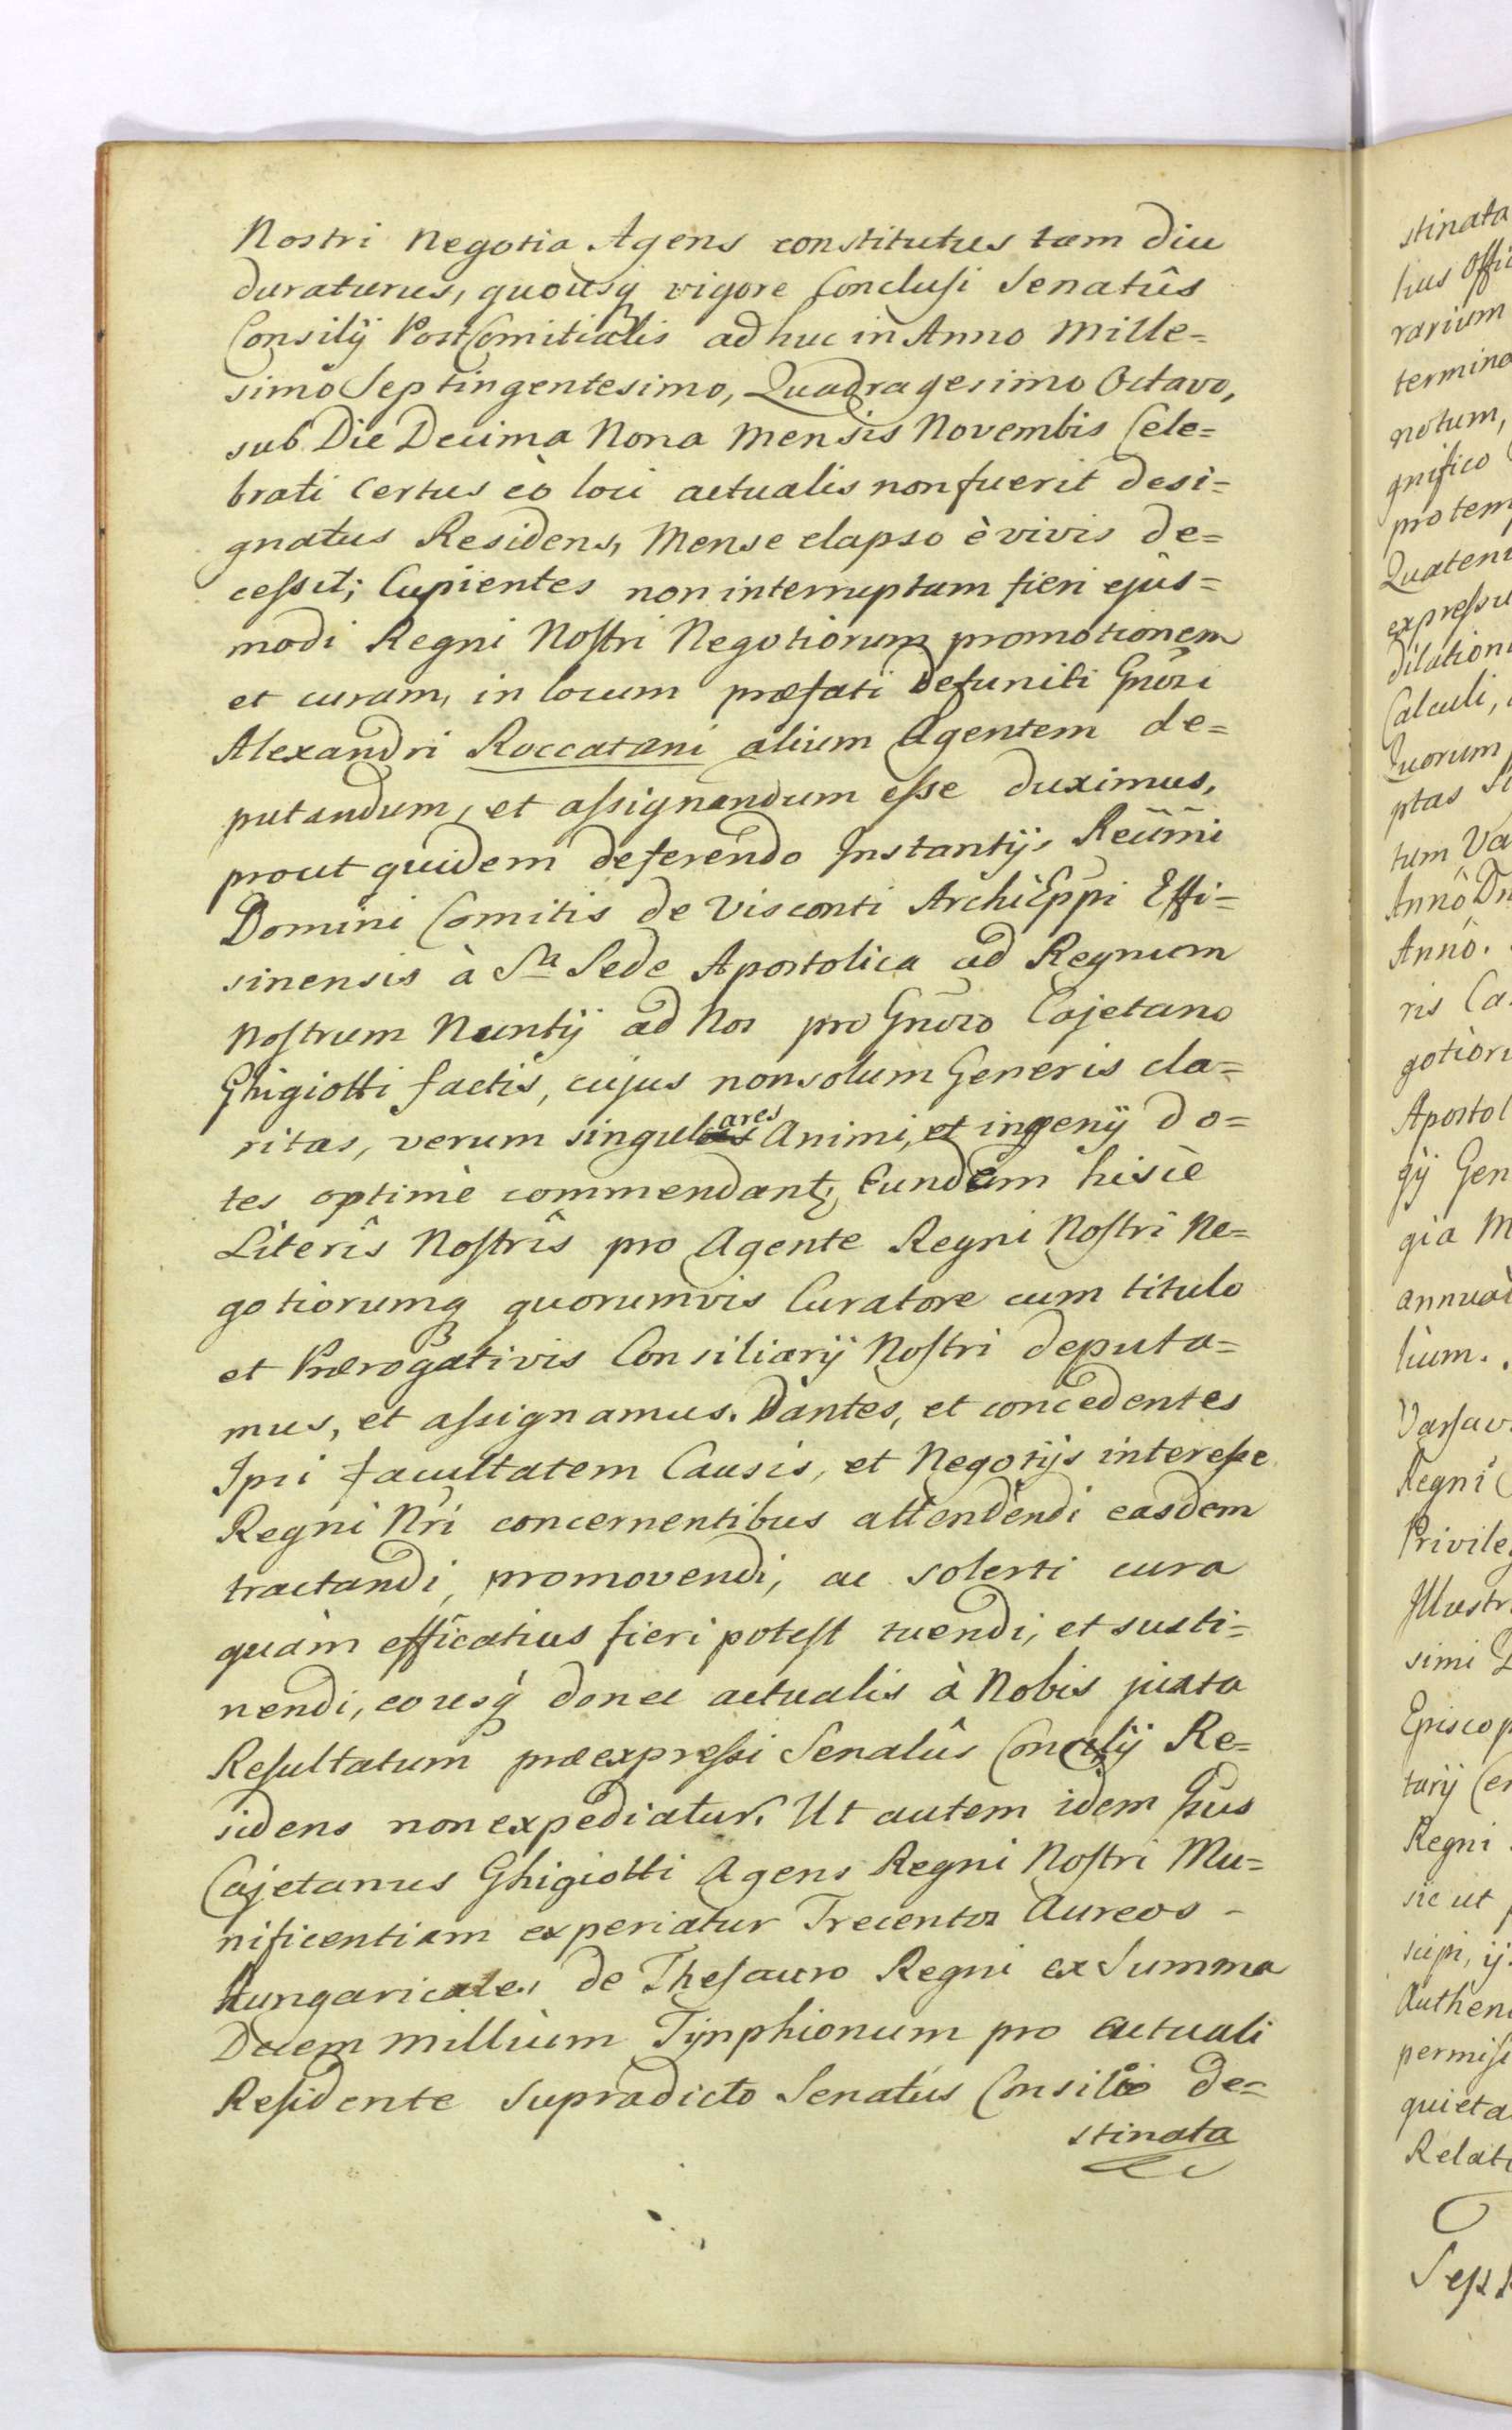 Nostri Negotia Agens constitutus tam diu
duraturus, quousq vigore Conclusi Senatûs
Consilÿ PostComitialis ad huc in Anno Mille=
simo Septingentesimo, Quadragesimo Octavo,
sub Die Decima Nona Mensis Novembis Cele=
brati certus eò loci actualis non fuerit desi=
gnatus Residens, Mense elapso è vivis de=
cessit; Cupientes non interruptam fieri ejus=
modi Regni Nostri Negotiorum promotionem
et curam, in locum præfati defuncti Gnõsi
Alexandri Roccatani alium Agentem de=
putandum, et assignandum esse duximus,
prout quidem deferendo Instantÿs Reũmi
Domini Comitis de Visconti ArchiEppi Effi=
sinensis à Sta Sede Apostolica ad Regnum
Nostrum Nuntÿ ad Nos pro Gnõso Cajetano
Ghigiotti factis, cujus non solum Generis cla=
ritas, verum singulares Animi, et ingenÿ do=
tes optimè commendant; Eundem hisce
Literîs Nostrîs pro Agente Regni Nostri Ne=
gotiorumq quorumvis Curatore cum titulo
et Prærogativis Consiliarÿ Nostri deputa=
mus, et assignamus. Dantes, et concedentes
Ipsi facultatem Causis, et Negotÿs interesse
Regni Nri concernentibus attendendi easdem
tractandi, promovendi, ac solerti cura
quàm efficatius fieri potest tuendi, et susti=
nendi, eousq donec actualis à Nobis juxta
Resultatum præexpressi Senatûs Consilÿ Re=
sidens non expediatur. Ut autem idem Gsus
Cajetanus Ghigiotti Agens Regni Nostri Mu=
nificentiam experiatur Trecentos Aureos -
Hungaricales de Thesauro Regni ex Summa
Decem millium Tÿnphionum pro actuali
Residente Supradicto Senatus Consilio de=
stinata
stinata
rarium
notum,
gnifico
Calculi,
Quorum
ptas
Anno.
Apostol
gÿ Gen
gia M
lium.
Regni
Privile
Illustr
simi
Episcop
Regni
sic ut
Authen
Relati